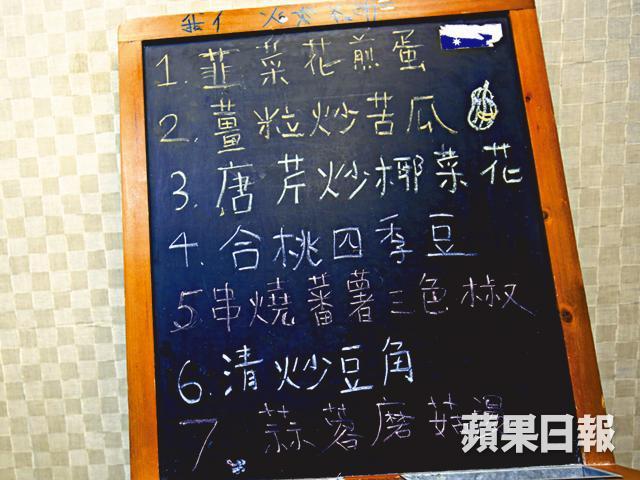 1. 韮菜花煎蛋
2. 薑粒炒苦瓜
3. 唐芹炒椰菜花
4. 合桃四季豆
5. 串燒蕃薯三色椒
6. 清炒豆角
7. 蒜蓉磨菇湯
蘋果日報